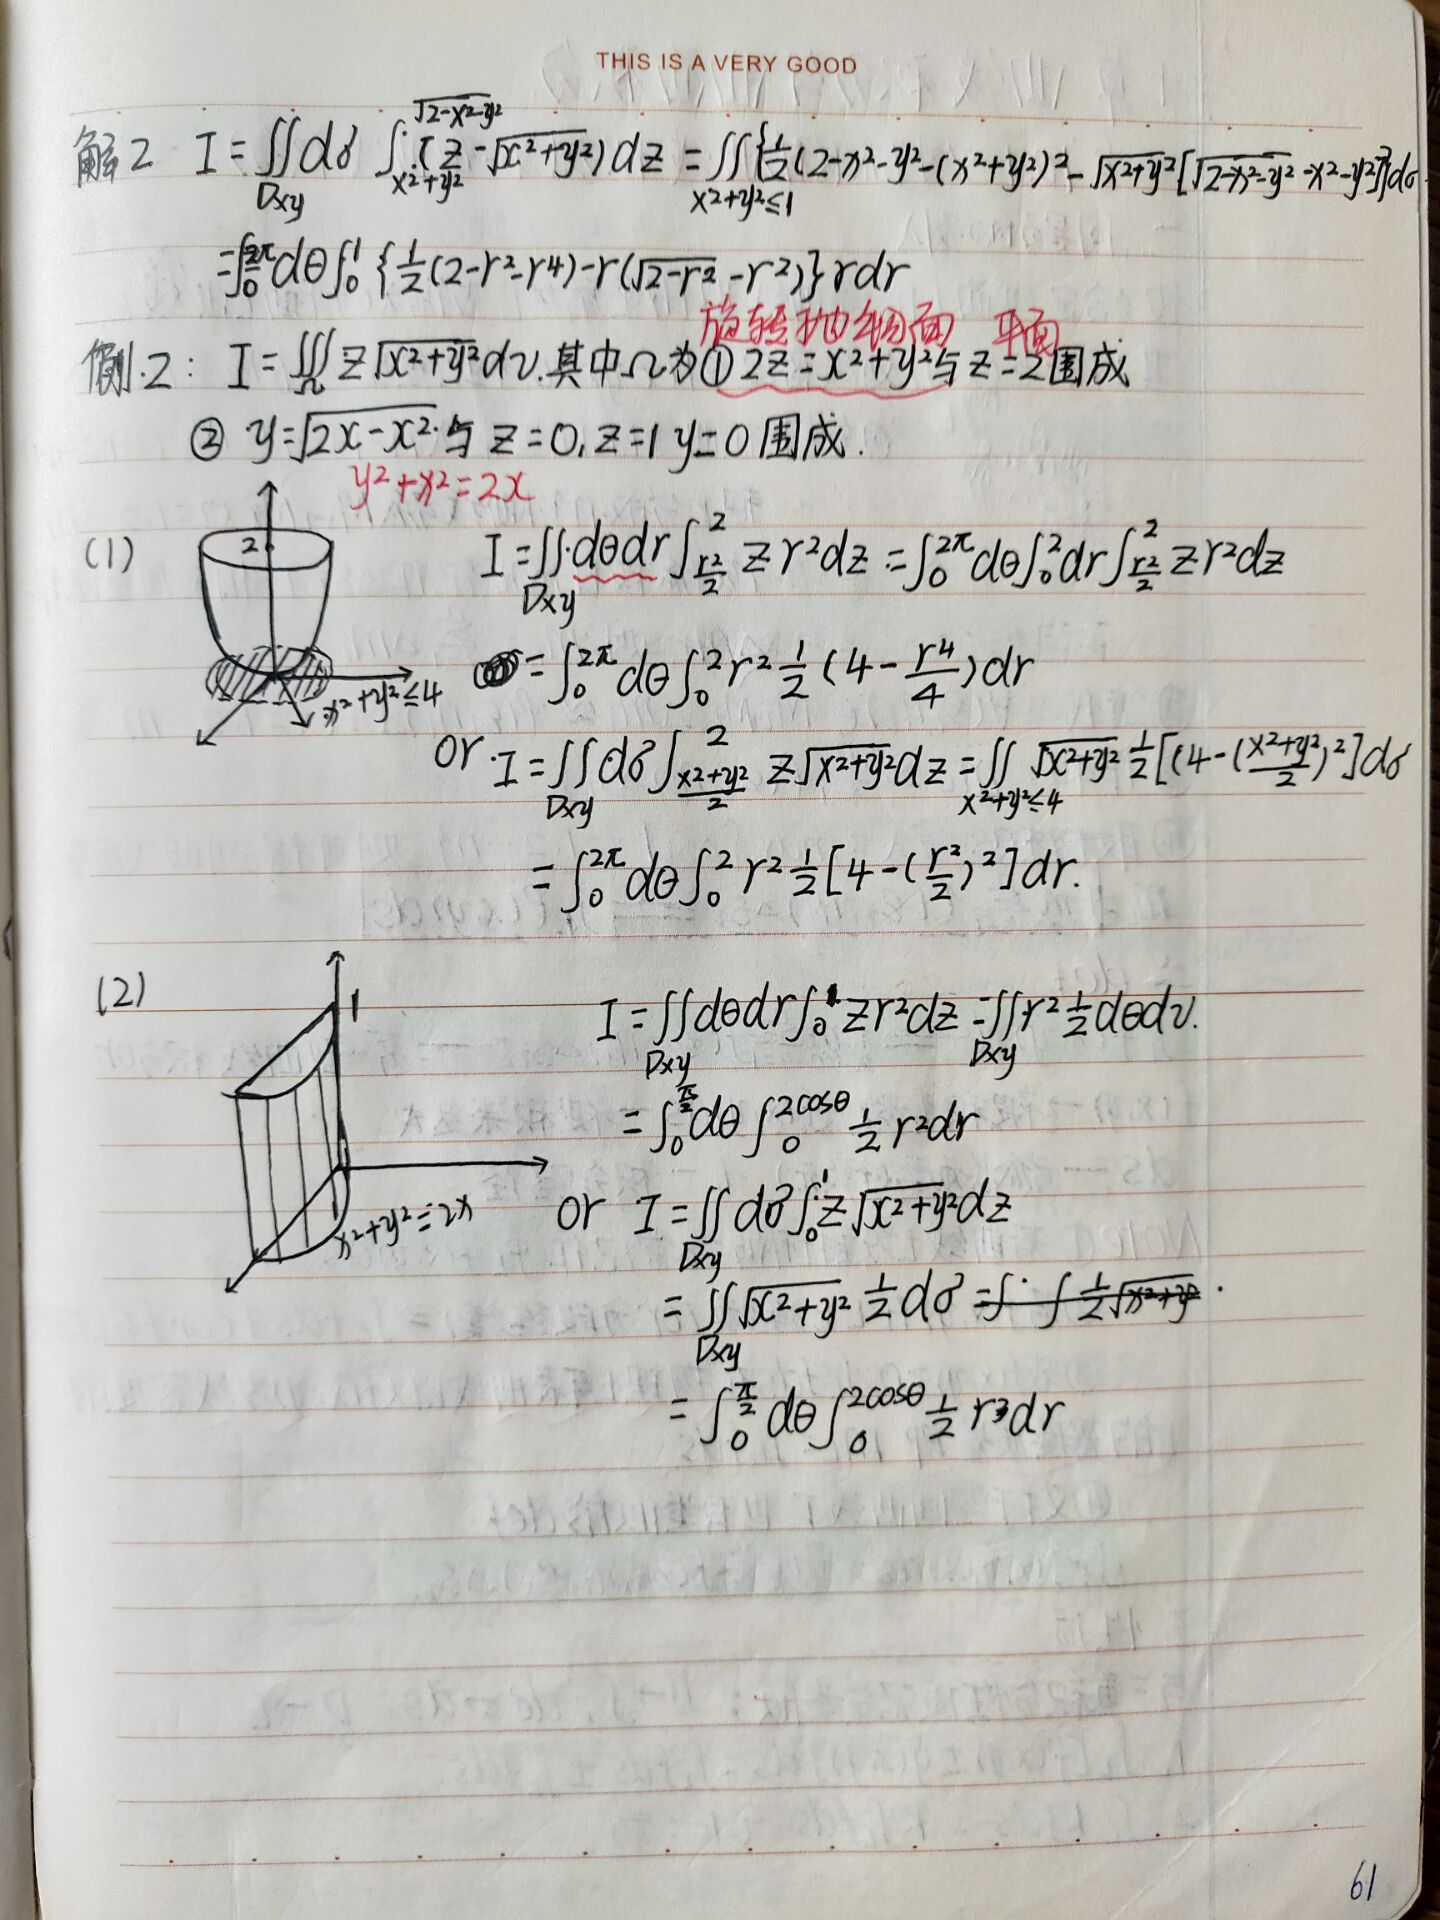 THIS IS A VERY GOOD
解2 I=∬_{Dxy} dσ ∫_{x²+y²}^{√(2-x²-y²)} [z-√(x²+y²)) dz = ∬_{x²+y²≤1} {½(2-x²-y²-(x²+y²)²-√(x²+y²)[√(2-x²-y²)-x²-y²]}dσ
=∫_0^{2π}dθ∫_0^1 {½(2-r²-r⁴)-r(√(2-r²)-r²)}rdr
旋转抛物面 平面
例.2: I=∭_Ω z√(x²+y²)dv.其中Ω为① 2z=x²+y²与z=2围成
② y=√(2x-x²)与 z=0,z=1 y=0围成.
y²+x²=2x
(1) 2 I=∬_{Dxy}dθdr∫_{r²/2}^2 z r²dz=∫_0^{2π}dθ∫_0^2dr∫_{r²/2}^2 z r²dz
x²+y²≤4 =∫_0^{2π}dθ∫_0^2 r² ½(4-r⁴/4)dr
or I=∬_{Dxy}dσ∫_{(x²+y²)/2}^2 z√(x²+y²)dz=∬_{x²+y²≤4} √(x²+y²) ½[(4-((x²+y²)/2)²]dσ
=∫_0^{2π}dθ∫_0^2 r² ½[4-(r²/2)²]dr.
(2) 1 I=∬_{Dxy}dθdr∫_0^1 zr²dz=∬_{Dxy}r² ½dθdv.
=∫_0^{π/2}dθ∫_0^{2cosθ} ½ r²dr
x²+y²=2x or I=∬_{Dxy}dσ∫_0^1 z√(x²+y²)dz
=∬_{Dxy}√(x²+y²) ½dσ =∫ ∫ ½√(x²+y²)
=∫_0^{π/2}dθ∫_0^{2cosθ} ½ r²dr
61